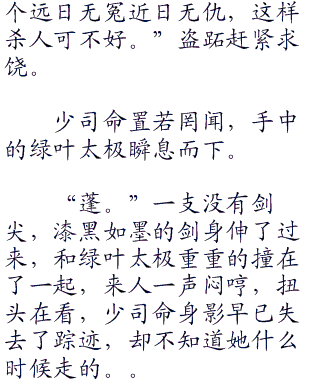 个远日无冤近日无仇，这样
杀人可不好。”盗跖赶紧求
饶。
少司命置若罔闻，手中
的绿叶太极瞬息而下。
“蓬。”一支没有剑
尖，漆黑如墨的剑身伸了过
来，和绿叶太极重重的撞在
了一起，来人一声闷哼，扭
头在看，少司命身影早已失
去了踪迹，却不知道她什么
时候走的。。